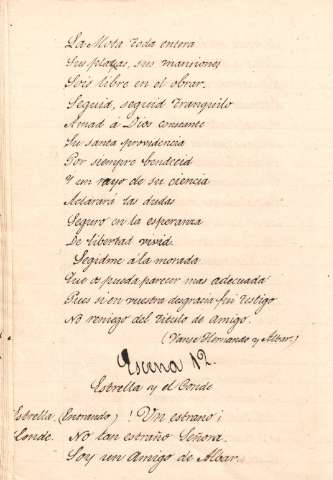 La Mota toda entera
Sus plazas, sus mansiones
Sois libre en el obrar.
Seguid, seguid tranquilo
Amad á Dios consuente
Su santa providencia
Por siempre bendecid
Y un rayo de su ciencia
Aclarará las dudas
Seguro en la esperanza
De libertad vivid.
Segidme a la morada
Que os pueda parecer mas adecuada
Pues si en vuestra desgracia fui testigo
No reniego del titulo de Amigo.
(Vanse Hernando y Albar)
Escena 12.
Estrella y el Conde
Estrella. (Entrando) ! Un estraño ¡
Conde. No tan estraño Señora.
Soy un Amigo de Albar.